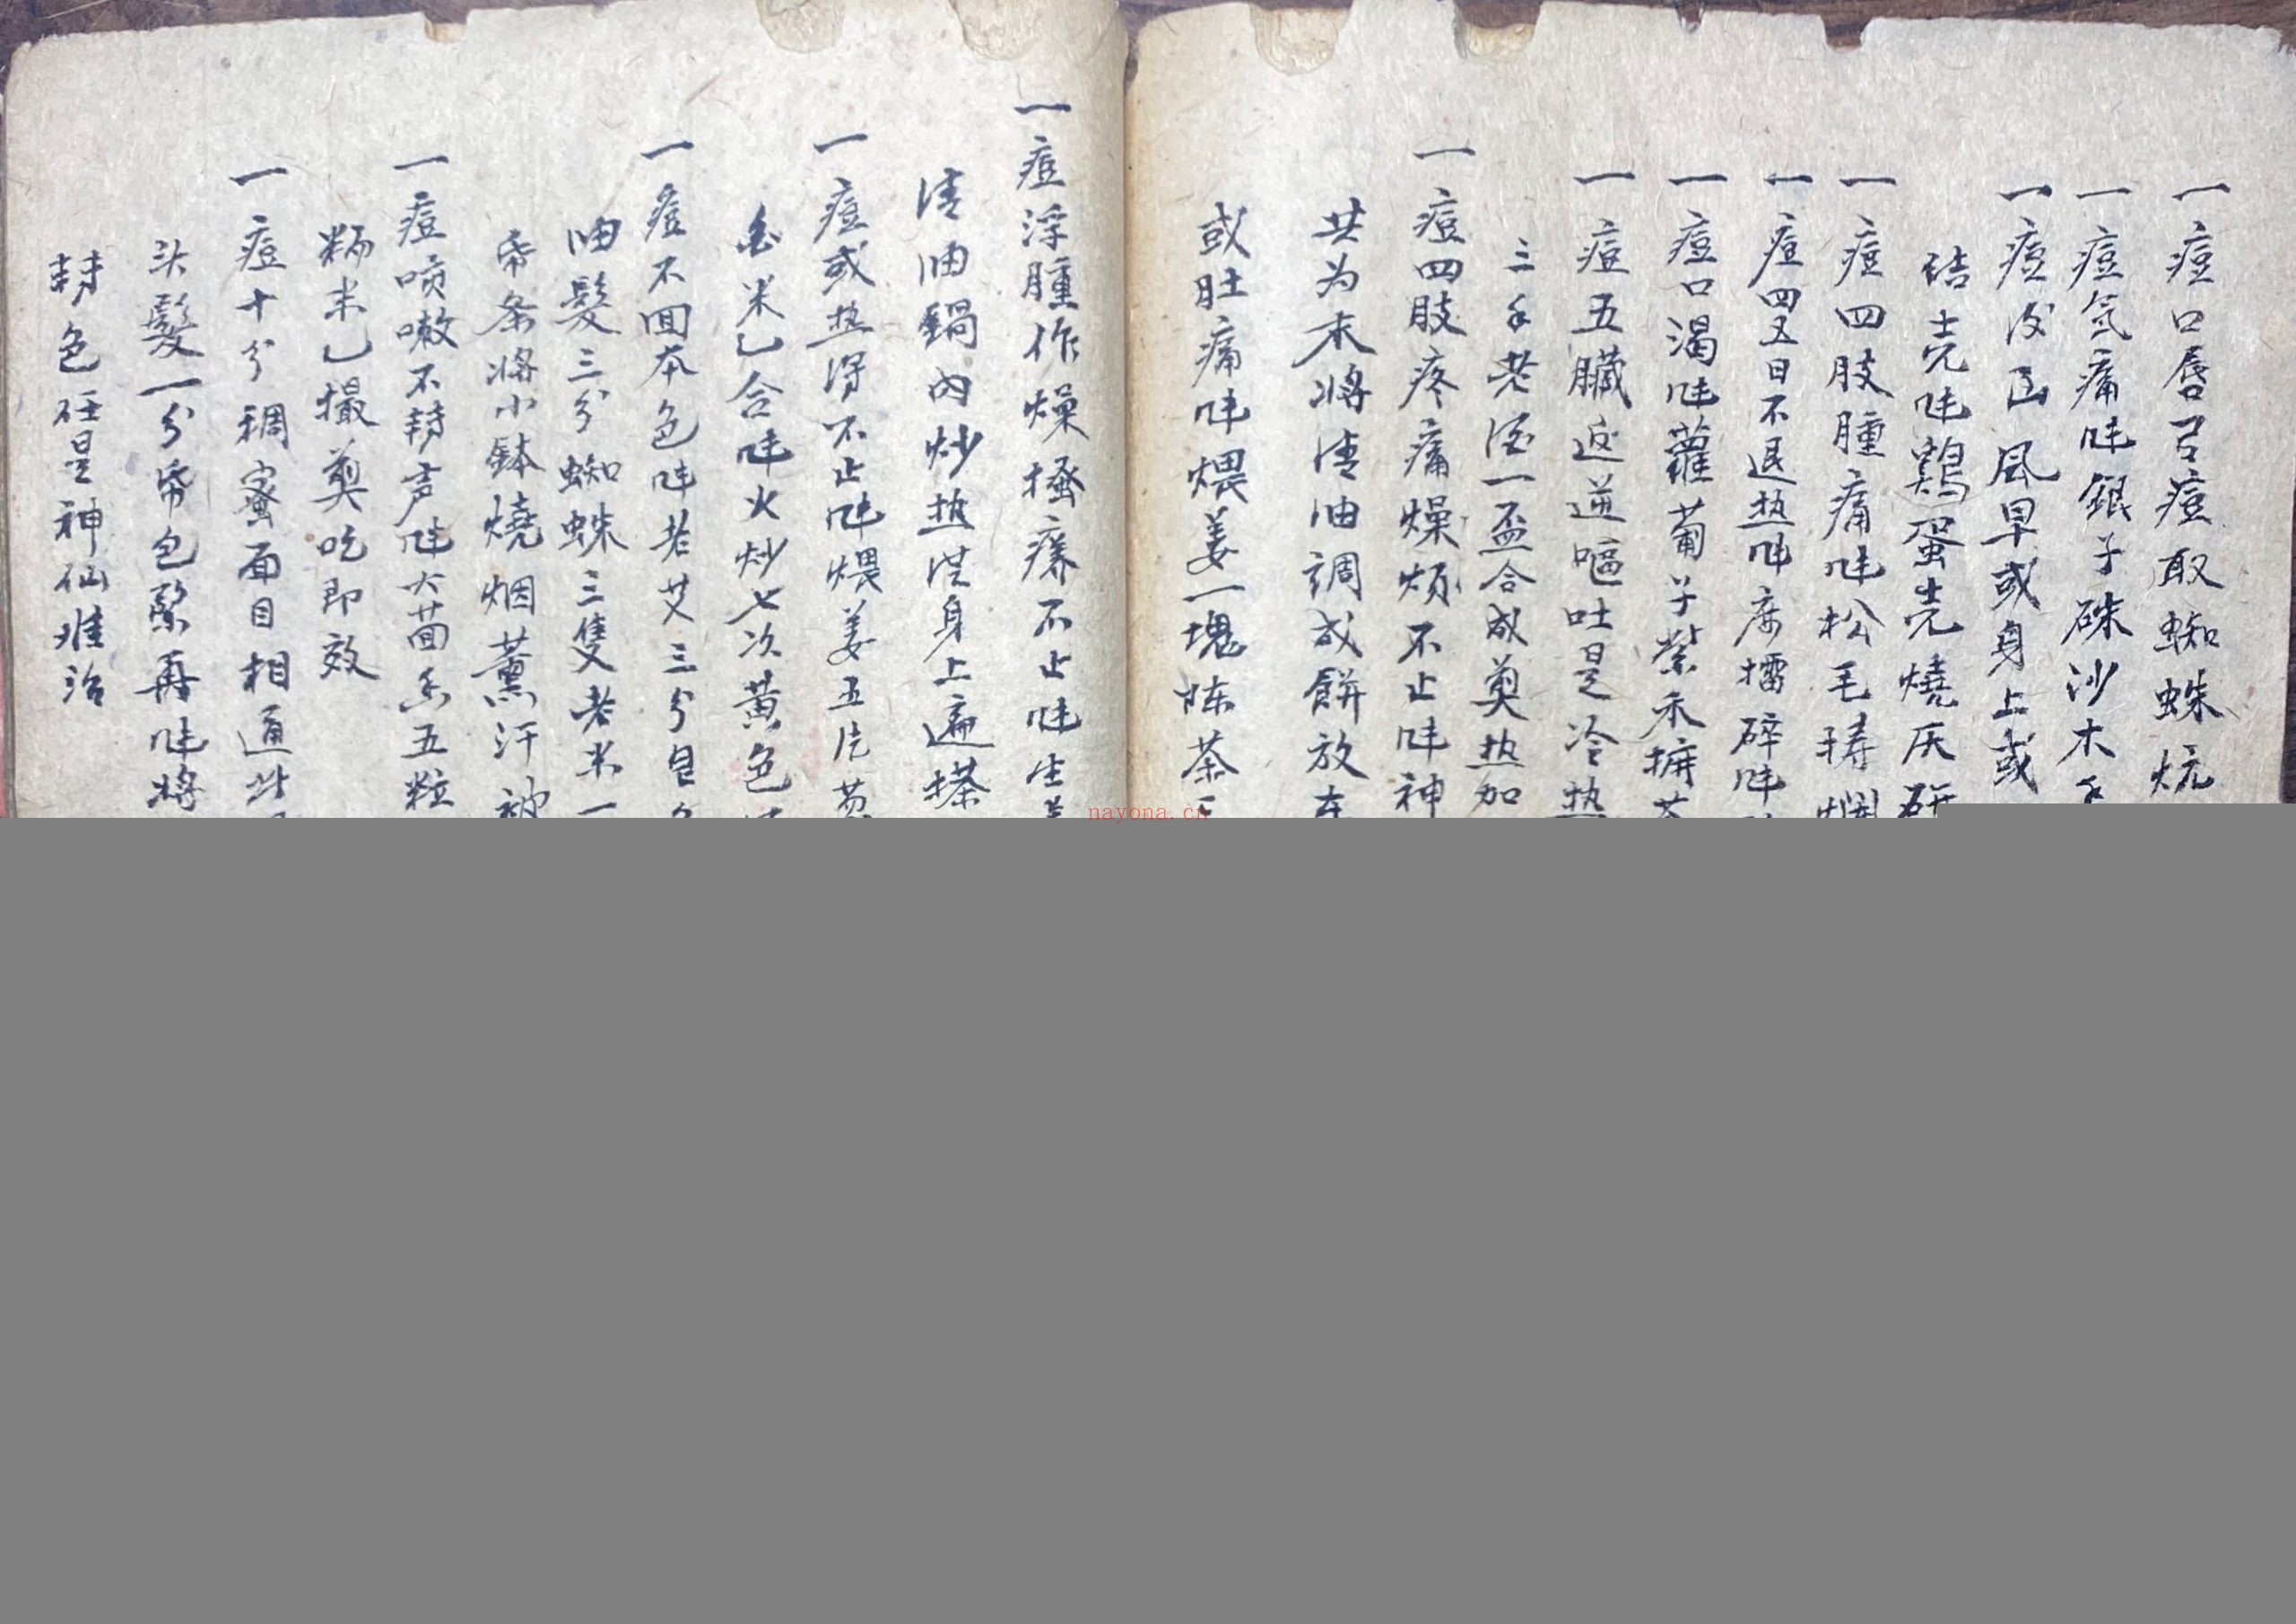 一痘口唇舌痘取蜘蛛炕
一痘気痛吽銀子硃沙木
一痘後凶風早或身上或
結売吽鷄蛋売燒灰研
一痘四肢腫痛吽松毛擣爛
一痘四五日不退热吽擂碎吽
一痘口渴吽蘿蔔子紫禾
一痘五臟返逆嘔吐是冷热
三手老酒一盃合成煎热加
一痘四肢疼痛燥烦不止吽神
共为末将清油調成餅放在
或肚痛吽煨姜一塊陈茶
一痘浮腫作燥搔癢不止吽生姜
清油鍋内炒热渾身上遍搽
一痘或热得不止吽煨姜五片
米乚合吽火炒七次黄色
一痘不回本色吽老艾三分
油髮三分蜘蛛三隻老米一
帋条将小鉢燒烟薰汗被
一痘喷嗽不轉声吽大茴香五粒
糯米乚撮煎吃即效
一痘十分稠蜜面目相連此
头髮一分帋包緊再吽将
轉色任是神仙难治
nayona.cn